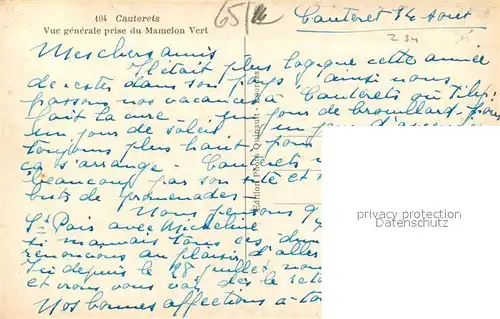 104 Cauterets
Vue générale prise du Mamelon Vert
65
Cauteret 14 Aout
234
Mes chers amis
Il était plus logique cette année
de rester dans son pays ainsi nous
passons nos vacances à Cauterets où
fait la cure - un jour de brouillard
un jour de soleil un jour
toujours plus haut, pour
ça s'arrange - Cauterets
beaucoup par son site et
buts de promenades -
Nous pensons
St Pair avec Micheline
si mamais tous ces
renoncons au plaisir d'aller
Ici depuis le 28 juillet nous
et vrous vous dès le
Nos bonnes affections à
Edition Photo
privacy protection
Datenschutz